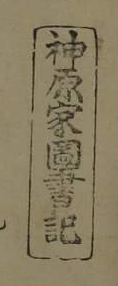 神原家圖書記